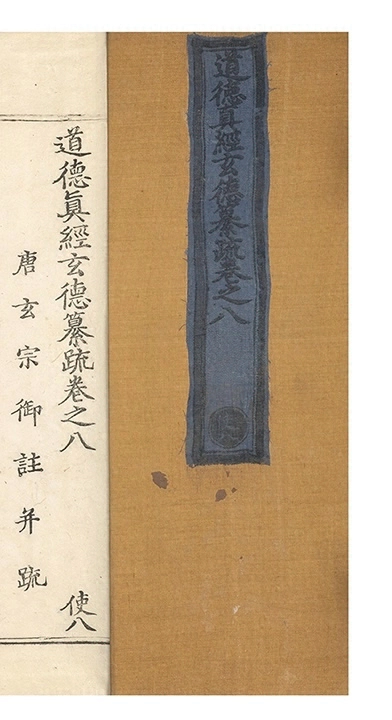 道德真經玄德纂疏卷之八
道德眞經玄德纂䟽卷之八
使八
唐玄宗御註并䟽